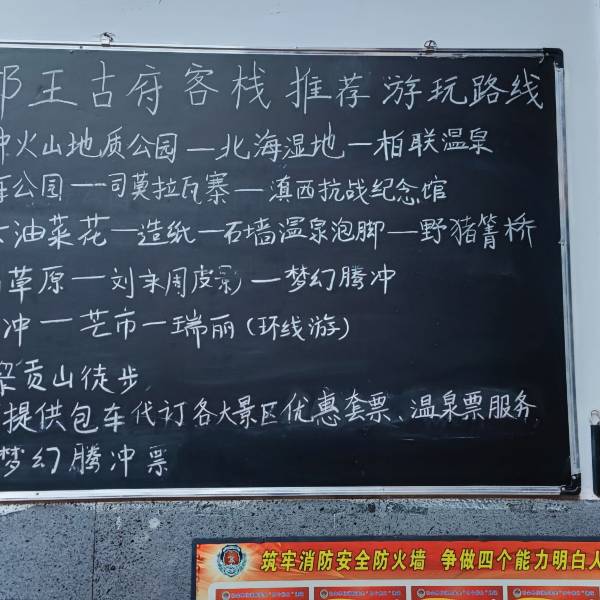 王古府客栈推荐游玩路线
火山地质公园—北海湿地—柏联温泉
公园—司莫拉瓦寨—滇西抗战纪念馆
油菜花—造纸—石墙温泉泡脚—野猪箐桥
草原—刘家周皮影—梦幻腾冲
冲—芒市—瑞丽(环线游)
贡山徒步
提供包车代订各大景区优惠套票、温泉票服务
梦幻腾冲票
筑牢消防安全防火墙 争做四个能力明白人